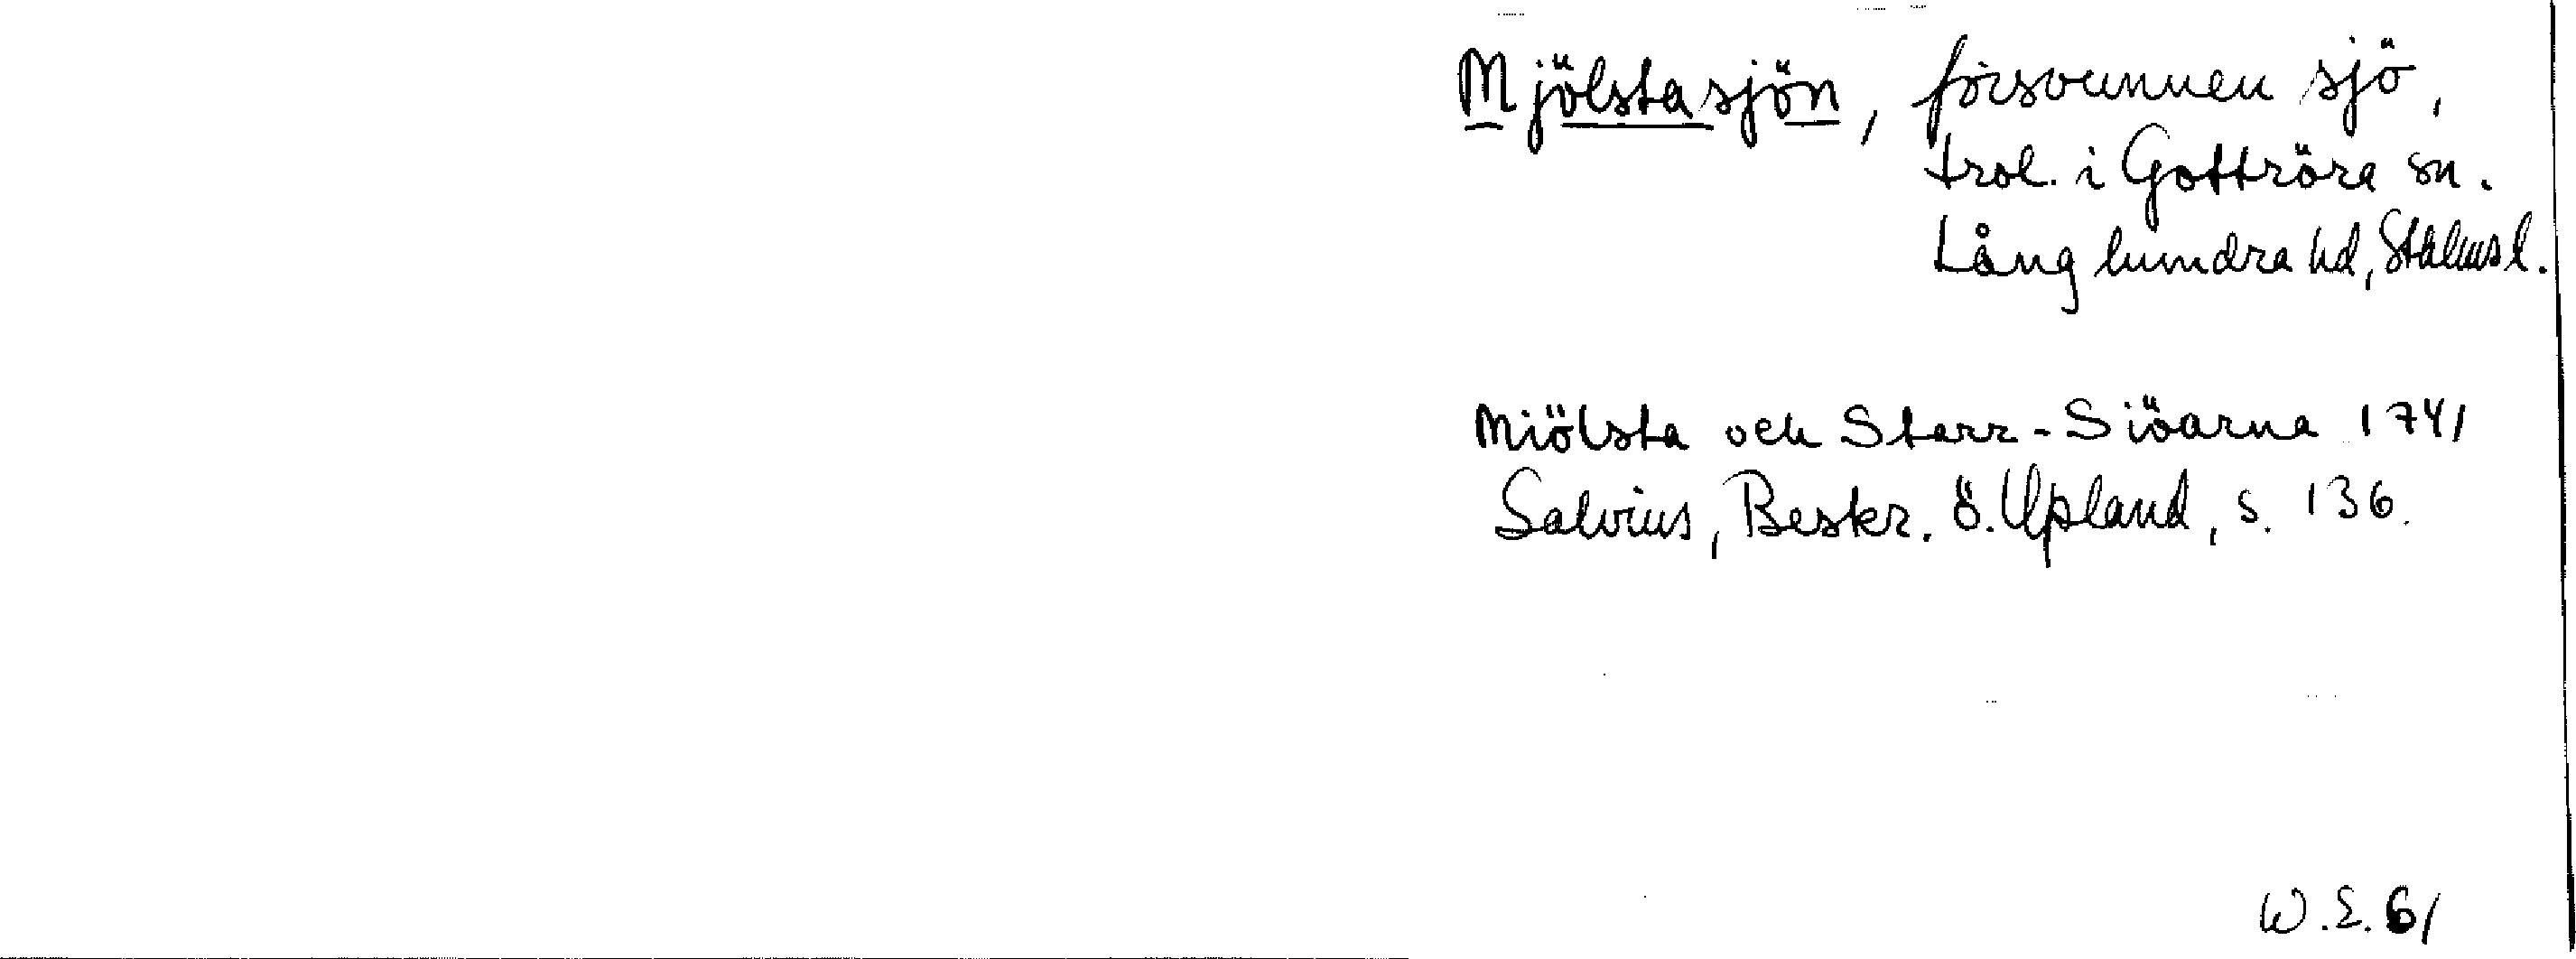 Mjölstasjön, försvunnen sjö,
trol. i Gottröra sn.
Långhundra hd, Sthlmsl.
Miölsta och Starr-Siöarna 1741
Salvius, Beskr. ö. Upland, s. 136.
W.E. 61